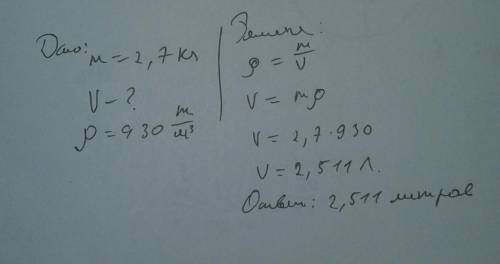 Дано:
m = 2,7 кг
V - ?
ρ = 930 m/м³
Решение:
ρ = m/V
V = mρ
V = 2,7·930
V = 2,511 л.
Ответ: 2,511 литров